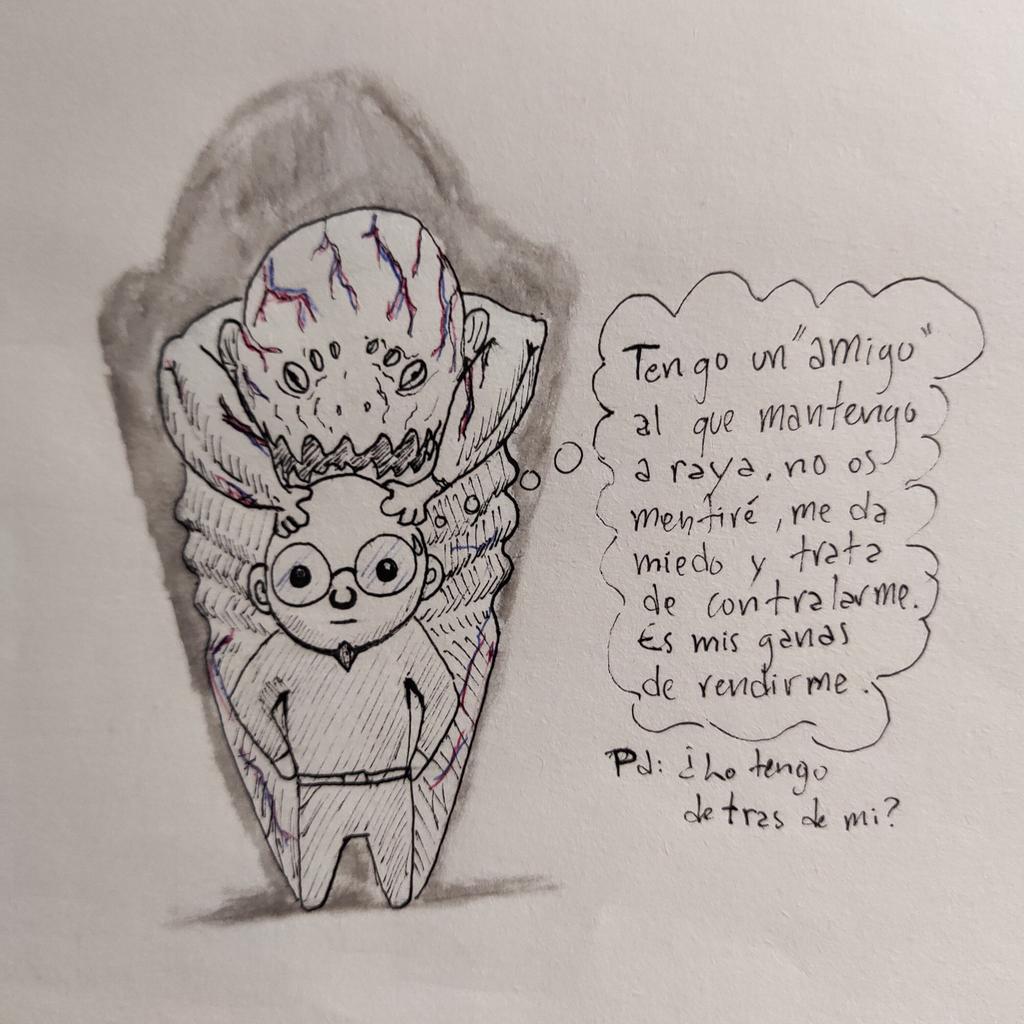 Tengo un "amigo"
al que mantengo
a raya, no os
mentiré, me da
miedo y trata
de contralarme.
Es mis ganas
de rendirme.
Pd: ¿Lo tengo
detras de mi?